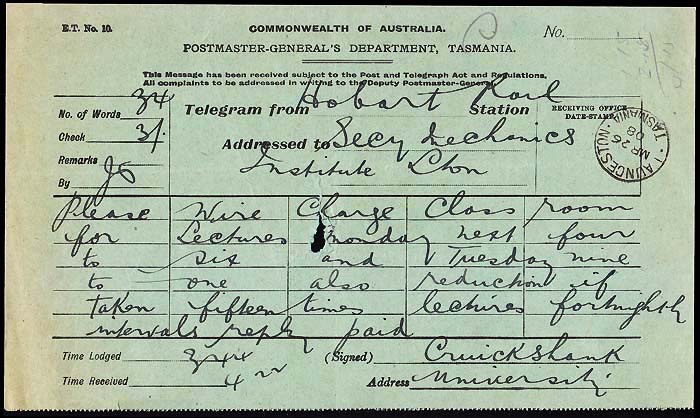 E.T. No. 10.
COMMONWEALTH OF AUSTRALIA.
No.
POSTMASTER-GENERAL'S DEPARTMENT, TASMANIA.
This Message has been received subject to the Post and Telegraph Act and Regulations.
All complaints to be addressed in writing to the Deputy Postmaster-General.
No. of Words 34
Telegram from Hobart Station
RECEIVING OFFICE DATE-STAMP
Check 3/.
Addressed to Secy Mechanics
Remarks
Institute Lton
By
LAUNCESTON · TASMANIA
MR 26
08
Please Wire Charge Class room
for Lectures Monday next four
to six and Tuesday nine
to one also reduction if
taken fifteen times lectures fortnightly
intervals reply paid
Time Lodged 344 (Signed) Cruickshank
Time Received 4 Address University